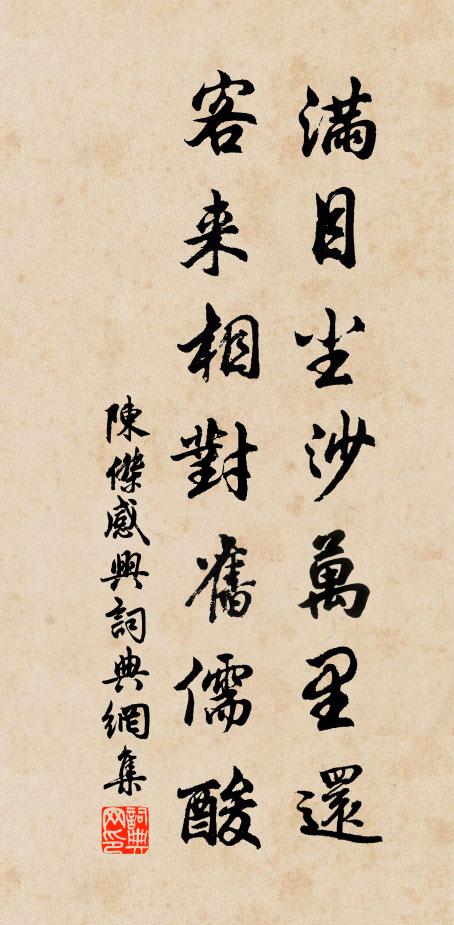 滿目尘沙萬里還
客来相對舊儒酸
陳傑感興詞典網集
詞典网印